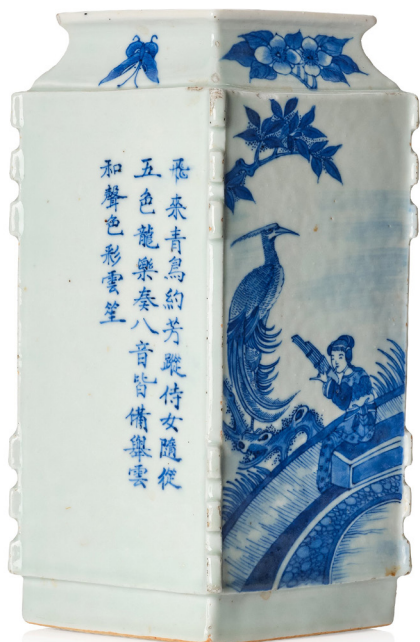 飛來青鳥約芳蹤侍女隨從
五色龍樂奏八音皆備舉雲
和聲色彩雲笙